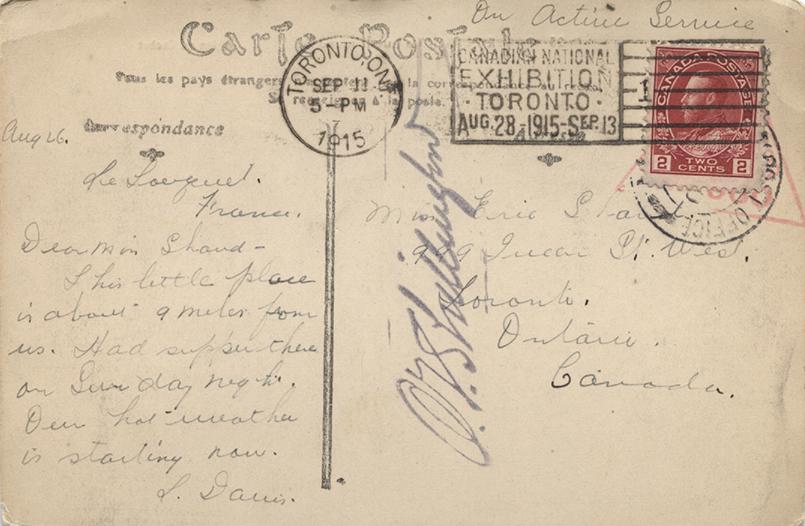 On Active Service
Carte Postale
Tous les pays étrangers la correspondance au recto.
à la poste.
TORONTO, ONT.
SEP 11
5 - PM
1915
CANADIAN NATIONAL
EXHIBITION
TORONTO
AUG. 28 - 1915 - SEP. 13
1
CANADA POSTAGE
2 TWO CENTS 2
POST OFFICE
Aug 26.
Correspondance
Le Touquet.
France.
Dear Miss Shand -
This little place
is about 9 miles from
us. Had supper there
on Sunday night.
Our hot weather
is starting now.
S. Davis.
Miss Eric Shand
Ave. Pl. West.
Toronto.
Ontario.
Canada.
Shillington